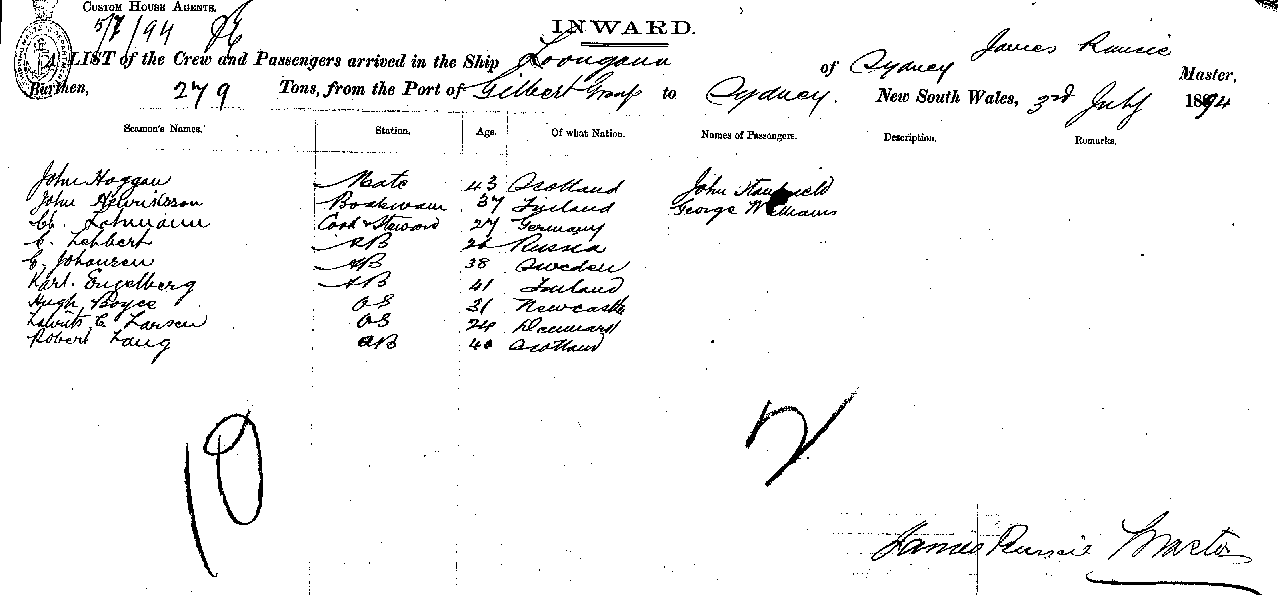 CUSTOM HOUSE AGENTS.
5/7/94
INWARD.
A LIST of the Crew and Passengers arrived in the Ship Loongana of Sydney James Runcie Master,
Burthen, 279 Tons, from the Port of Gilbert Group to Sydney. New South Wales, 3rd July 1894
Seamen's Names. Station. Age. Of what Nation. Names of Passengers. Description. Remarks.
John Hoggan Mate 43 Scotland John Stanfield
John Henriksson Boatswain 37 Finland George Williams
Ch. Lohmann Cook & Steward 27 Germany
C. Lehbert AB 26 Russia
E. Johansen AB 38 Sweden
Karl Engelberg AB 41 Finland
Hugh Boyce OS 31 Newcastle
Lauritz C Larsen OS 24 Denmark
Robert Laug AB 40 Scotland
10 2
James Runcie Master